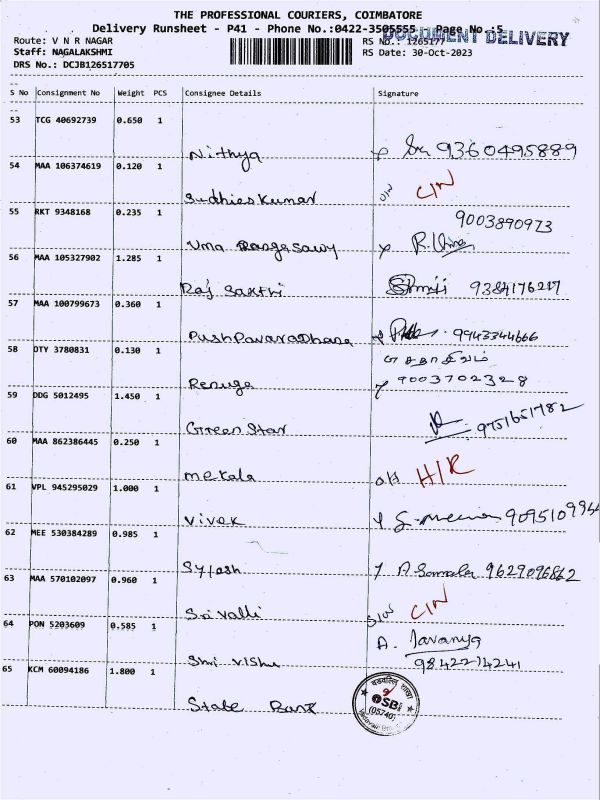 THE PROFESSIONAL COURIERS, COIMBATORE
Delivery Runsheet - P41 - Phone No.:0422-3505555 Page No :5
DOCUMENT DELIVERY
Route: V N R NAGAR
RS NO.: 1265177
Staff: NAGALAKSHMI
RS Date: 30-Oct-2023
DRS No.: DCJB126517705
S No Consignment No Weight PCS Consignee Details Signature
53 TCG 40692739 0.650 1
Nithya 9360495889
54 MAA 106374619 0.120 1
Sudhies Kumar C/N
55 RKT 9348168 0.235 1
9003890973
Uma Rangasawy R. Uma
56 MAA 105327902 1.285 1
Raj Sakthi 9384176217
57 MAA 100799673 0.360 1
PushPavaraDhana 9943344666
58 DTY 3780831 0.130 1
Renuga 9003702328
59 DDG 5012495 1.450 1
Green Star 9751651782
60 MAA 862386445 0.250 1
mekala H/R
61 VPL 945295029 1.000 1
Vivek 9095109954
62 MEE 530384289 0.985 1
Sylesh 9629096862
63 MAA 570102097 0.960 1
Srivalli C/N
64 PON 5203609 0.585 1
A. Lavanya
Shri Vishnu 9842214241
65 KCM 60094186 1.800 1
State Bank
SBI
(05740)